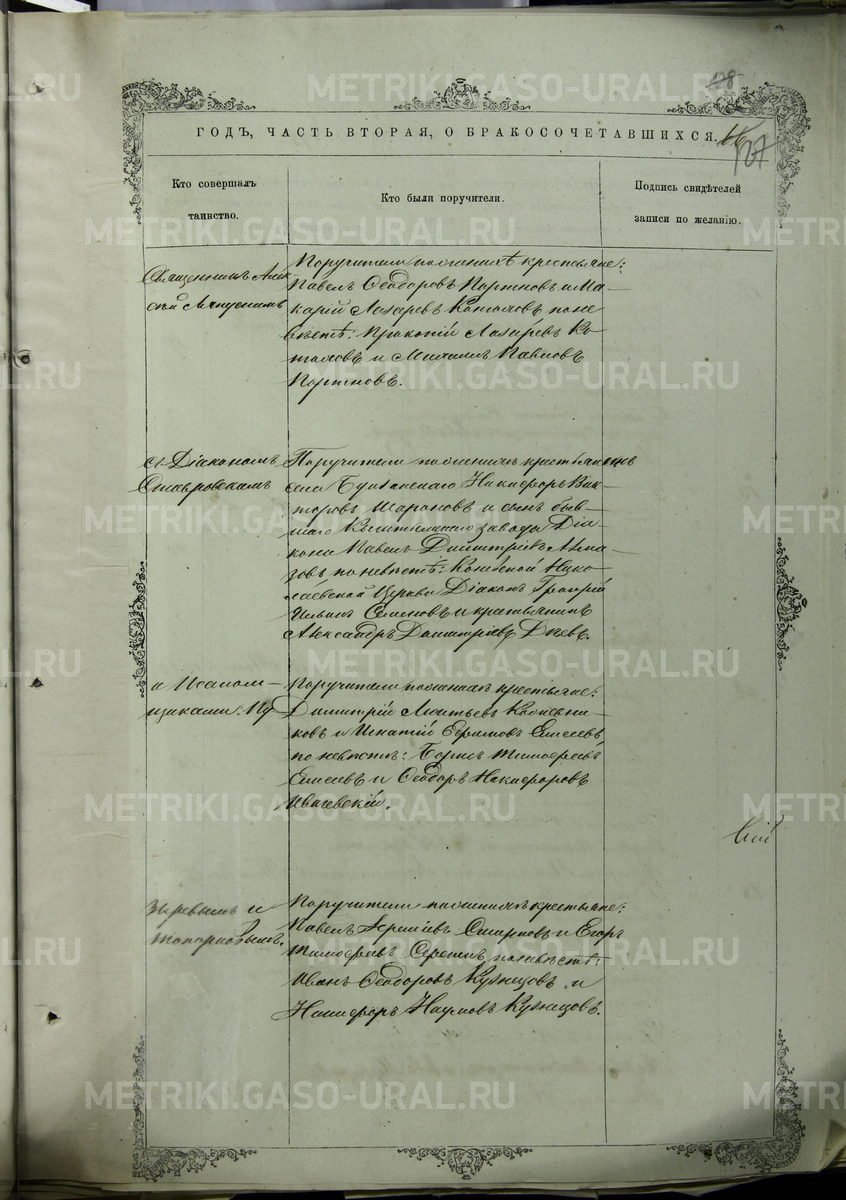 METRIKI.GASO-URAL.RU
128
ГОДЪ, ЧАСТЬ ВТОРАЯ, О БРАКОСОЧЕТАВШИХСЯ.
127
Кто совершалъ
таинство.
Кто были поручители.
Подпись свидѣтелей
записи по желанію.
Священникъ Алек-
сѣй
Поручители по женихѣ крестьяне:
Павелъ Ѳеодоровъ Портновъ и Ма-
карій Лазаревъ Котоловъ по не-
вѣстѣ: Прокопій Лазаревъ Ко-
толовъ и Михаилъ Павловъ
Портновъ.
съ Діакономъ
Ставровскимъ
Поручители по женихѣ крестьянинъ
села Никифоръ Вик-
торовъ Шароновъ и сынъ быв-
шаго завода Діа-
кона Павелъ Димитріевъ
по невѣстѣ: Коневской Нико-
лаевской Церкви Діаконъ Григорій
Семеновъ и крестьянинъ
Александръ Димитріевъ
и Псалом-
щиками:
Поручители по женихѣ крестьяне:
Димитрій Леонтьевъ
и Игнатій Ефимовъ Елисеевъ
по невѣстѣ: Борисъ Тимофеевъ
Елисеевъ и Ѳеодоръ Никифоровъ
Ивачевскій.
Зыревымъ и
Топорковымъ.
Поручители по женихѣ крестьяне:
Павелъ Смирновъ и Егоръ
Тимофеевъ по невѣстѣ:
Иванъ Ѳеодоровъ Кузнецовъ и
Никифоръ Наумовъ Кузнецовъ.
METRIKI.GASO-URAL.RU